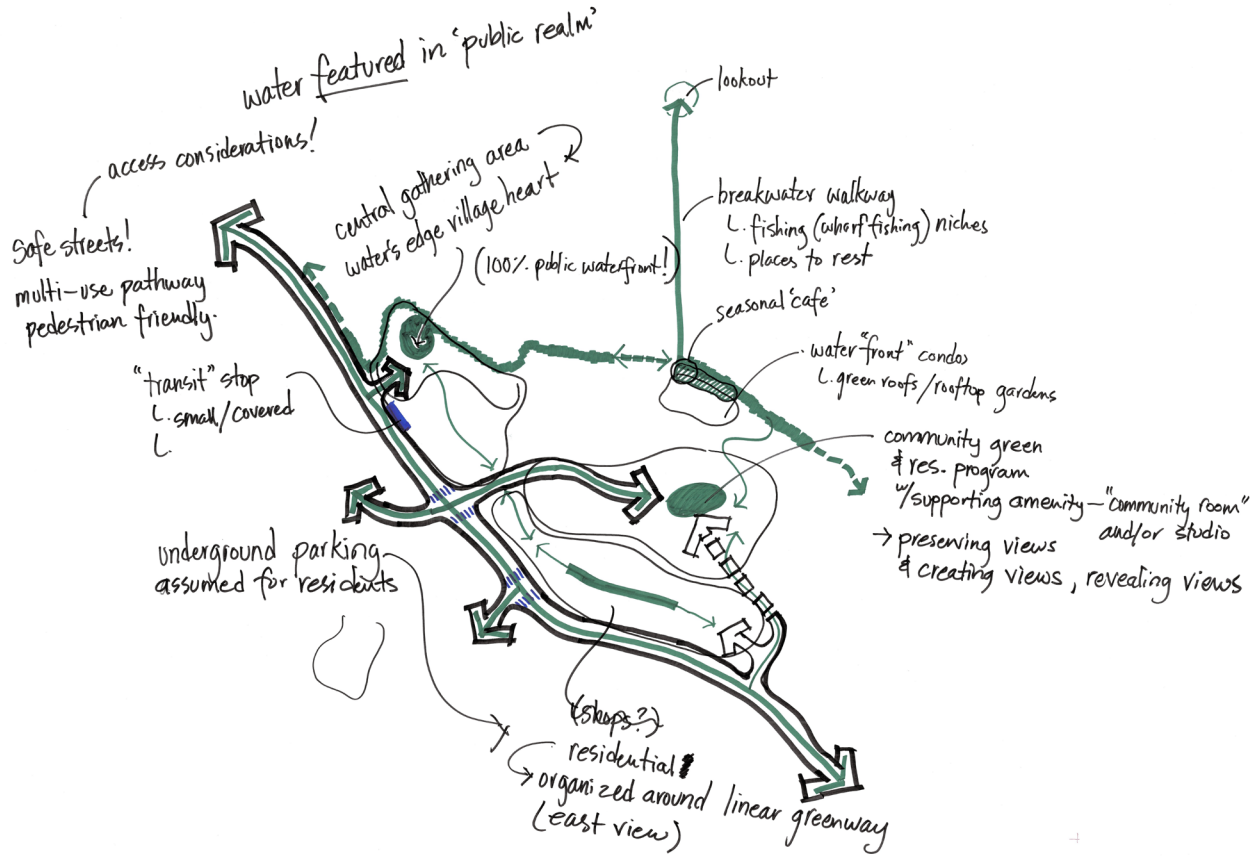 water featured in 'public realm'
access considerations!
Safe streets!
multi-use pathway
pedestrian friendly.
central gathering area
water's edge village heart
(100% public waterfront!)
lookout
breakwater walkway
L. fishing (wharf fishing) niches
L. places to rest
seasonal 'cafe'
water "front" condos
L. green roofs/rooftop gardens
"transit" stop
L. small/covered
L.
community green
& res. program
w/supporting amenity – "community room"
and/or studio
→ preserving views
& creating views, revealing views
underground parking
assumed for residents
(shops?)
residential
→ organized around linear greenway
(east view)